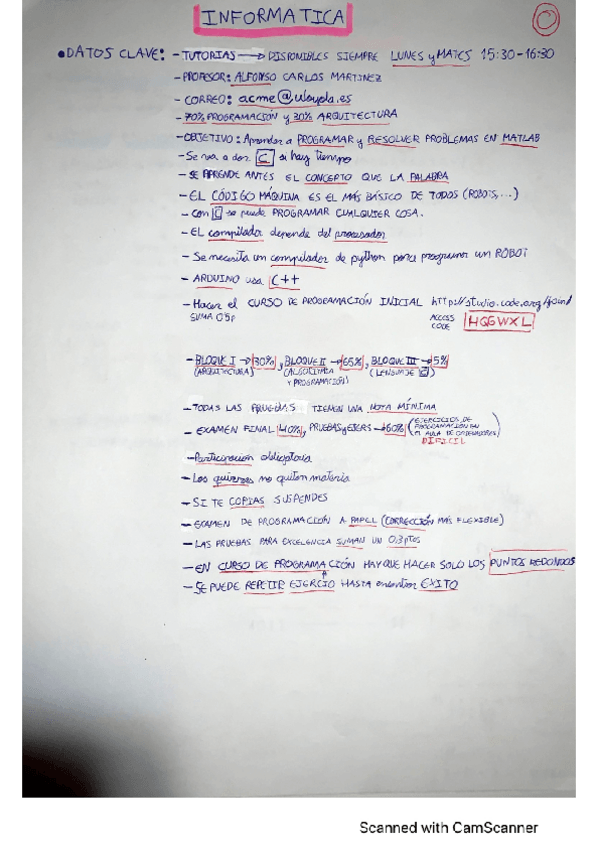 INFORMATICA
• DATOS CLAVE: - TUTORIAS → DISPONIBLES SIEMPRE LUNES y MATES 15:30-16:30
- PROFESOR: ALFONSO CARLOS MARTINEZ
- CORREO:
- 70% PROGRAMACIÓN y 30% ARQUITECTURA
- OBJETIVO: Aprender a PROGRAMAR y RESOLVER PROBLEMAS EN MATLAB
- Se va a dar C si hay tiempo
- SE APRENDE ANTES EL CONCEPTO QUE LA PALABRA
- EL CÓDIGO MÁQUINA ES EL MÁS BÁSICO DE TODOS (ROBOTS,...)
- Con C se puede PROGRAMAR CUALQUIER COSA.
- El compilador depende del procesador
- Se necesita un compilador de python para programar un ROBOT
- ARDUINO usa C++
- Hacer el CURSO DE PROGRAMACIÓN INICIAL http://studio.code.org/join/
SUMA 0'5p ACCESS CODE HQGWXL
- BLOQUE I → 30%, BLOQUE II → 65%, BLOQUE III → 5%
(ARQUITECTURA) (ALGORITMIA Y PROGRAMACIÓN) (LENGUAJE C)
- TODAS LAS PRUEBAS TIENEN UNA NOTA MÍNIMA
- EXAMEN FINAL 40%, PRUEBAS y EJERS → 60% (EJERCICIOS DE PROGRAMACIÓN EN EL AULA DE ORDENADORES)
DIFICIL
- Participación obligatoria
- Los quizzes no quitan materia
- SI TE COPIAS SUSPENDES
- EXAMEN DE PROGRAMACIÓN A PAPEL (CORRECCIÓN MÁS FLEXIBLE)
- LAS PRUEBAS PARA EXCELENCIA SUMAN UN 0.3 ptos
- EN CURSO DE PROGRAMACIÓN HAY QUE HACER SOLO LOS PUNTOS REDONDOS
- SE PUEDE REPETIR EJERCIO HASTA encontrar EXITO
Scanned with CamScanner